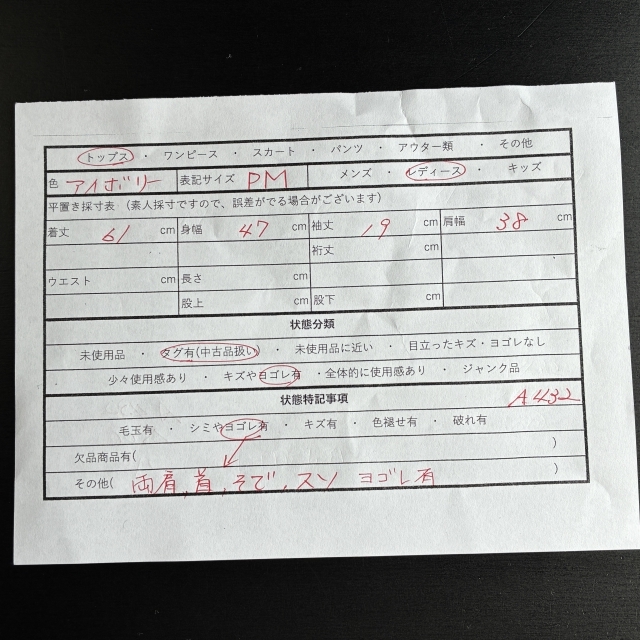 トップス ・ ワンピース ・ スカート ・ パンツ ・ アウター類 ・ その他
色 アイボリー 表記サイズ PM メンズ ・ レディース ・ キッズ
平置き採寸表 (素人採寸ですので、誤差がでる場合がございます)
着丈 61 cm 身幅 47 cm 袖丈 19 cm 肩幅 38 cm
裄丈 cm
ウエスト cm 長さ cm
股上 cm 股下 cm
状態分類
未使用品 ・ タグ有(中古品扱い) ・ 未使用品に近い ・ 目立ったキズ・ヨゴレなし
少々使用感あり ・ キズやヨゴレ有 ・全体的に使用感あり ・ ジャンク品
状態特記事項 A432
毛玉有 ・ シミやヨゴレ有 ・ キズ有 ・ 色褪せ有 ・ 破れ有
欠品商品有( )
その他( 両肩、首、そで、スソ ヨゴレ有 )